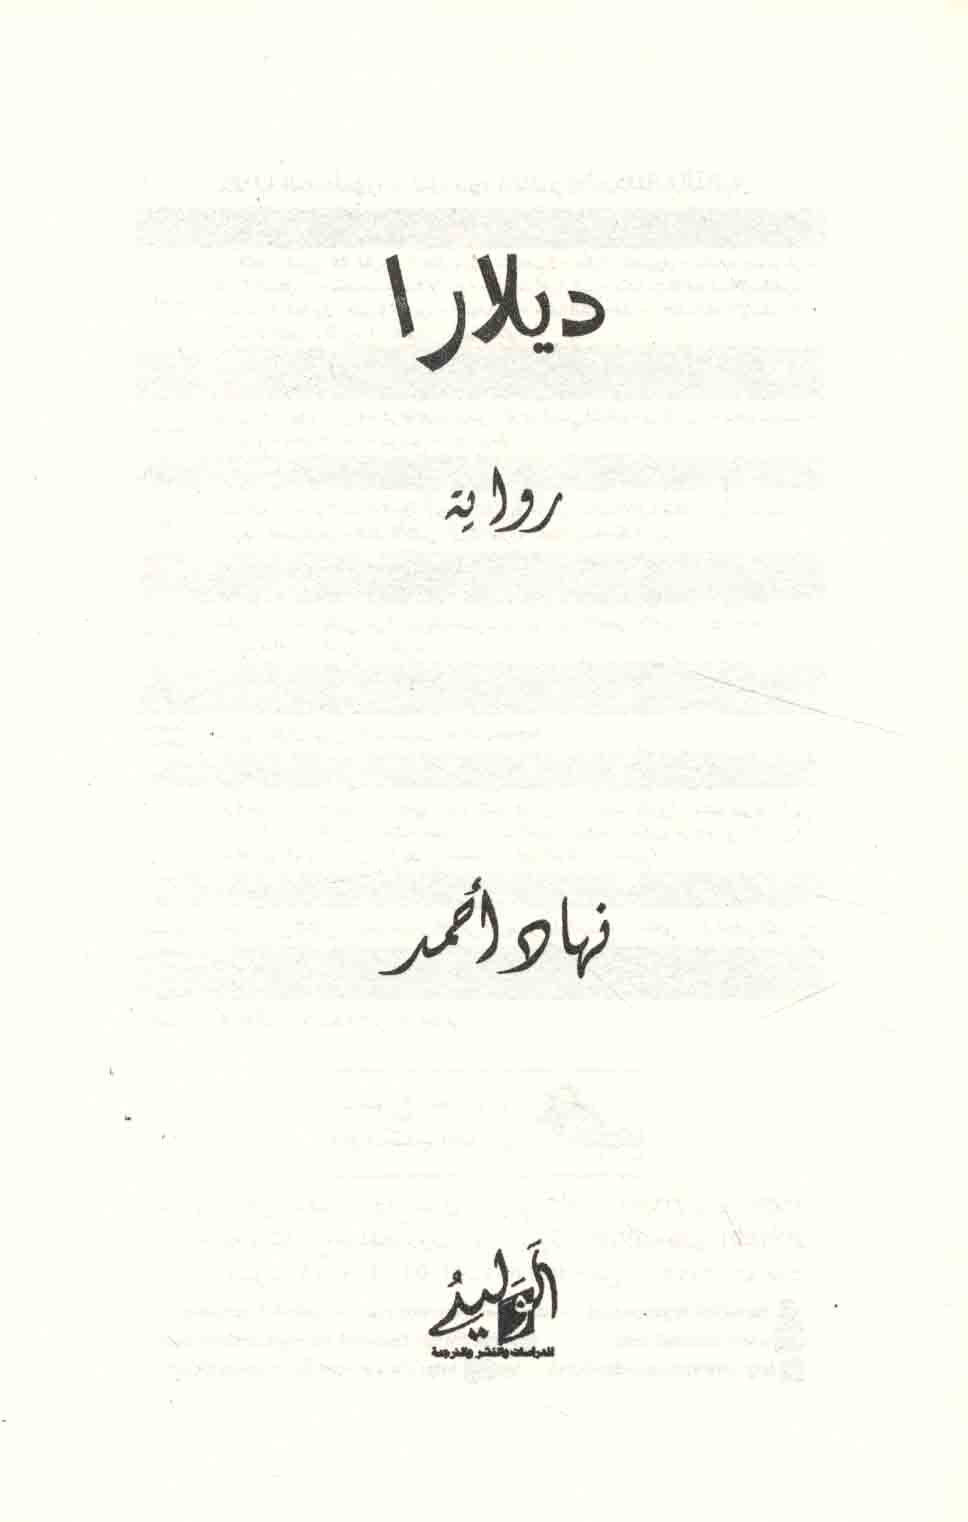 ديلارا
رواية
نهاد أحمد
الوليد
للدراسات والنشر والترجمة